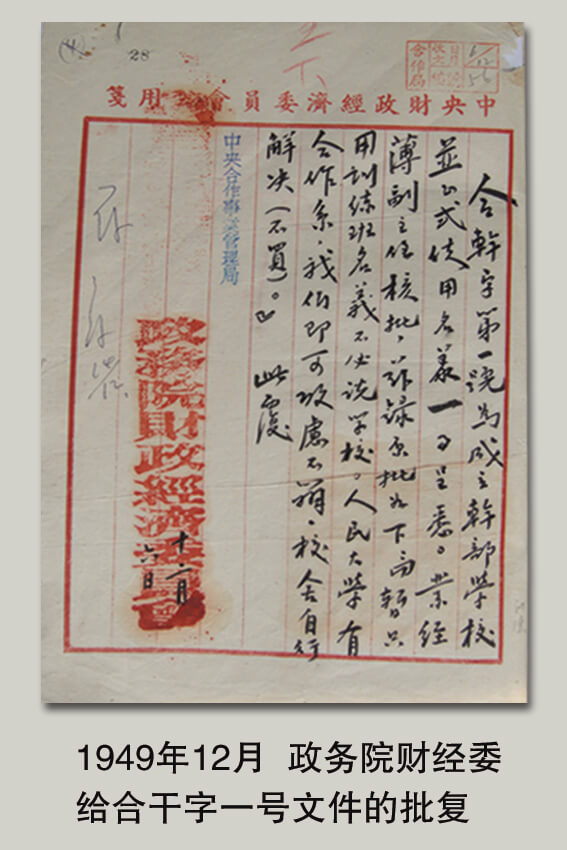 28
中央財政經濟委員會 用箋
合幹字第一號為成立幹部學校
並正式使用名義一事呈悉。業經
薄副主任核批，茲錄原批如下『暫只
用訓練班名義不必說學校。人民大學有
合作系，我們即可攷慮不辦，校舍自行
解决（不買）。』 此覆
中央合作事業管理局
政務院財政經濟委員會
十二月
六日
1949年12月 政务院财经委
给合干字一号文件的批复